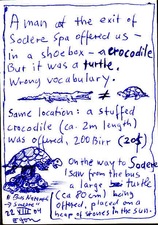 A man at the exit of
Sodere Spa offered us -
in a shoebox - a crocodile
But it was a turtle.
Wrong vocabulary.
≠
Same location: a stuffed
crocodile (ca. 2m length)
was offered, 200 Birr (20$)
On the way to Sodere
I saw from the bus
a large turtle
(ca 80cm) being
offered, placed on a
heap of stones in the sun.
Bus Nazareth
→ Sodere
22 VIII 04